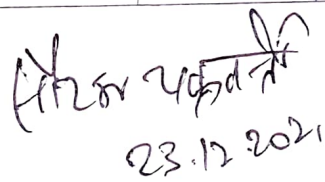 सौरभ चक्रवर्ती
23.12.2021